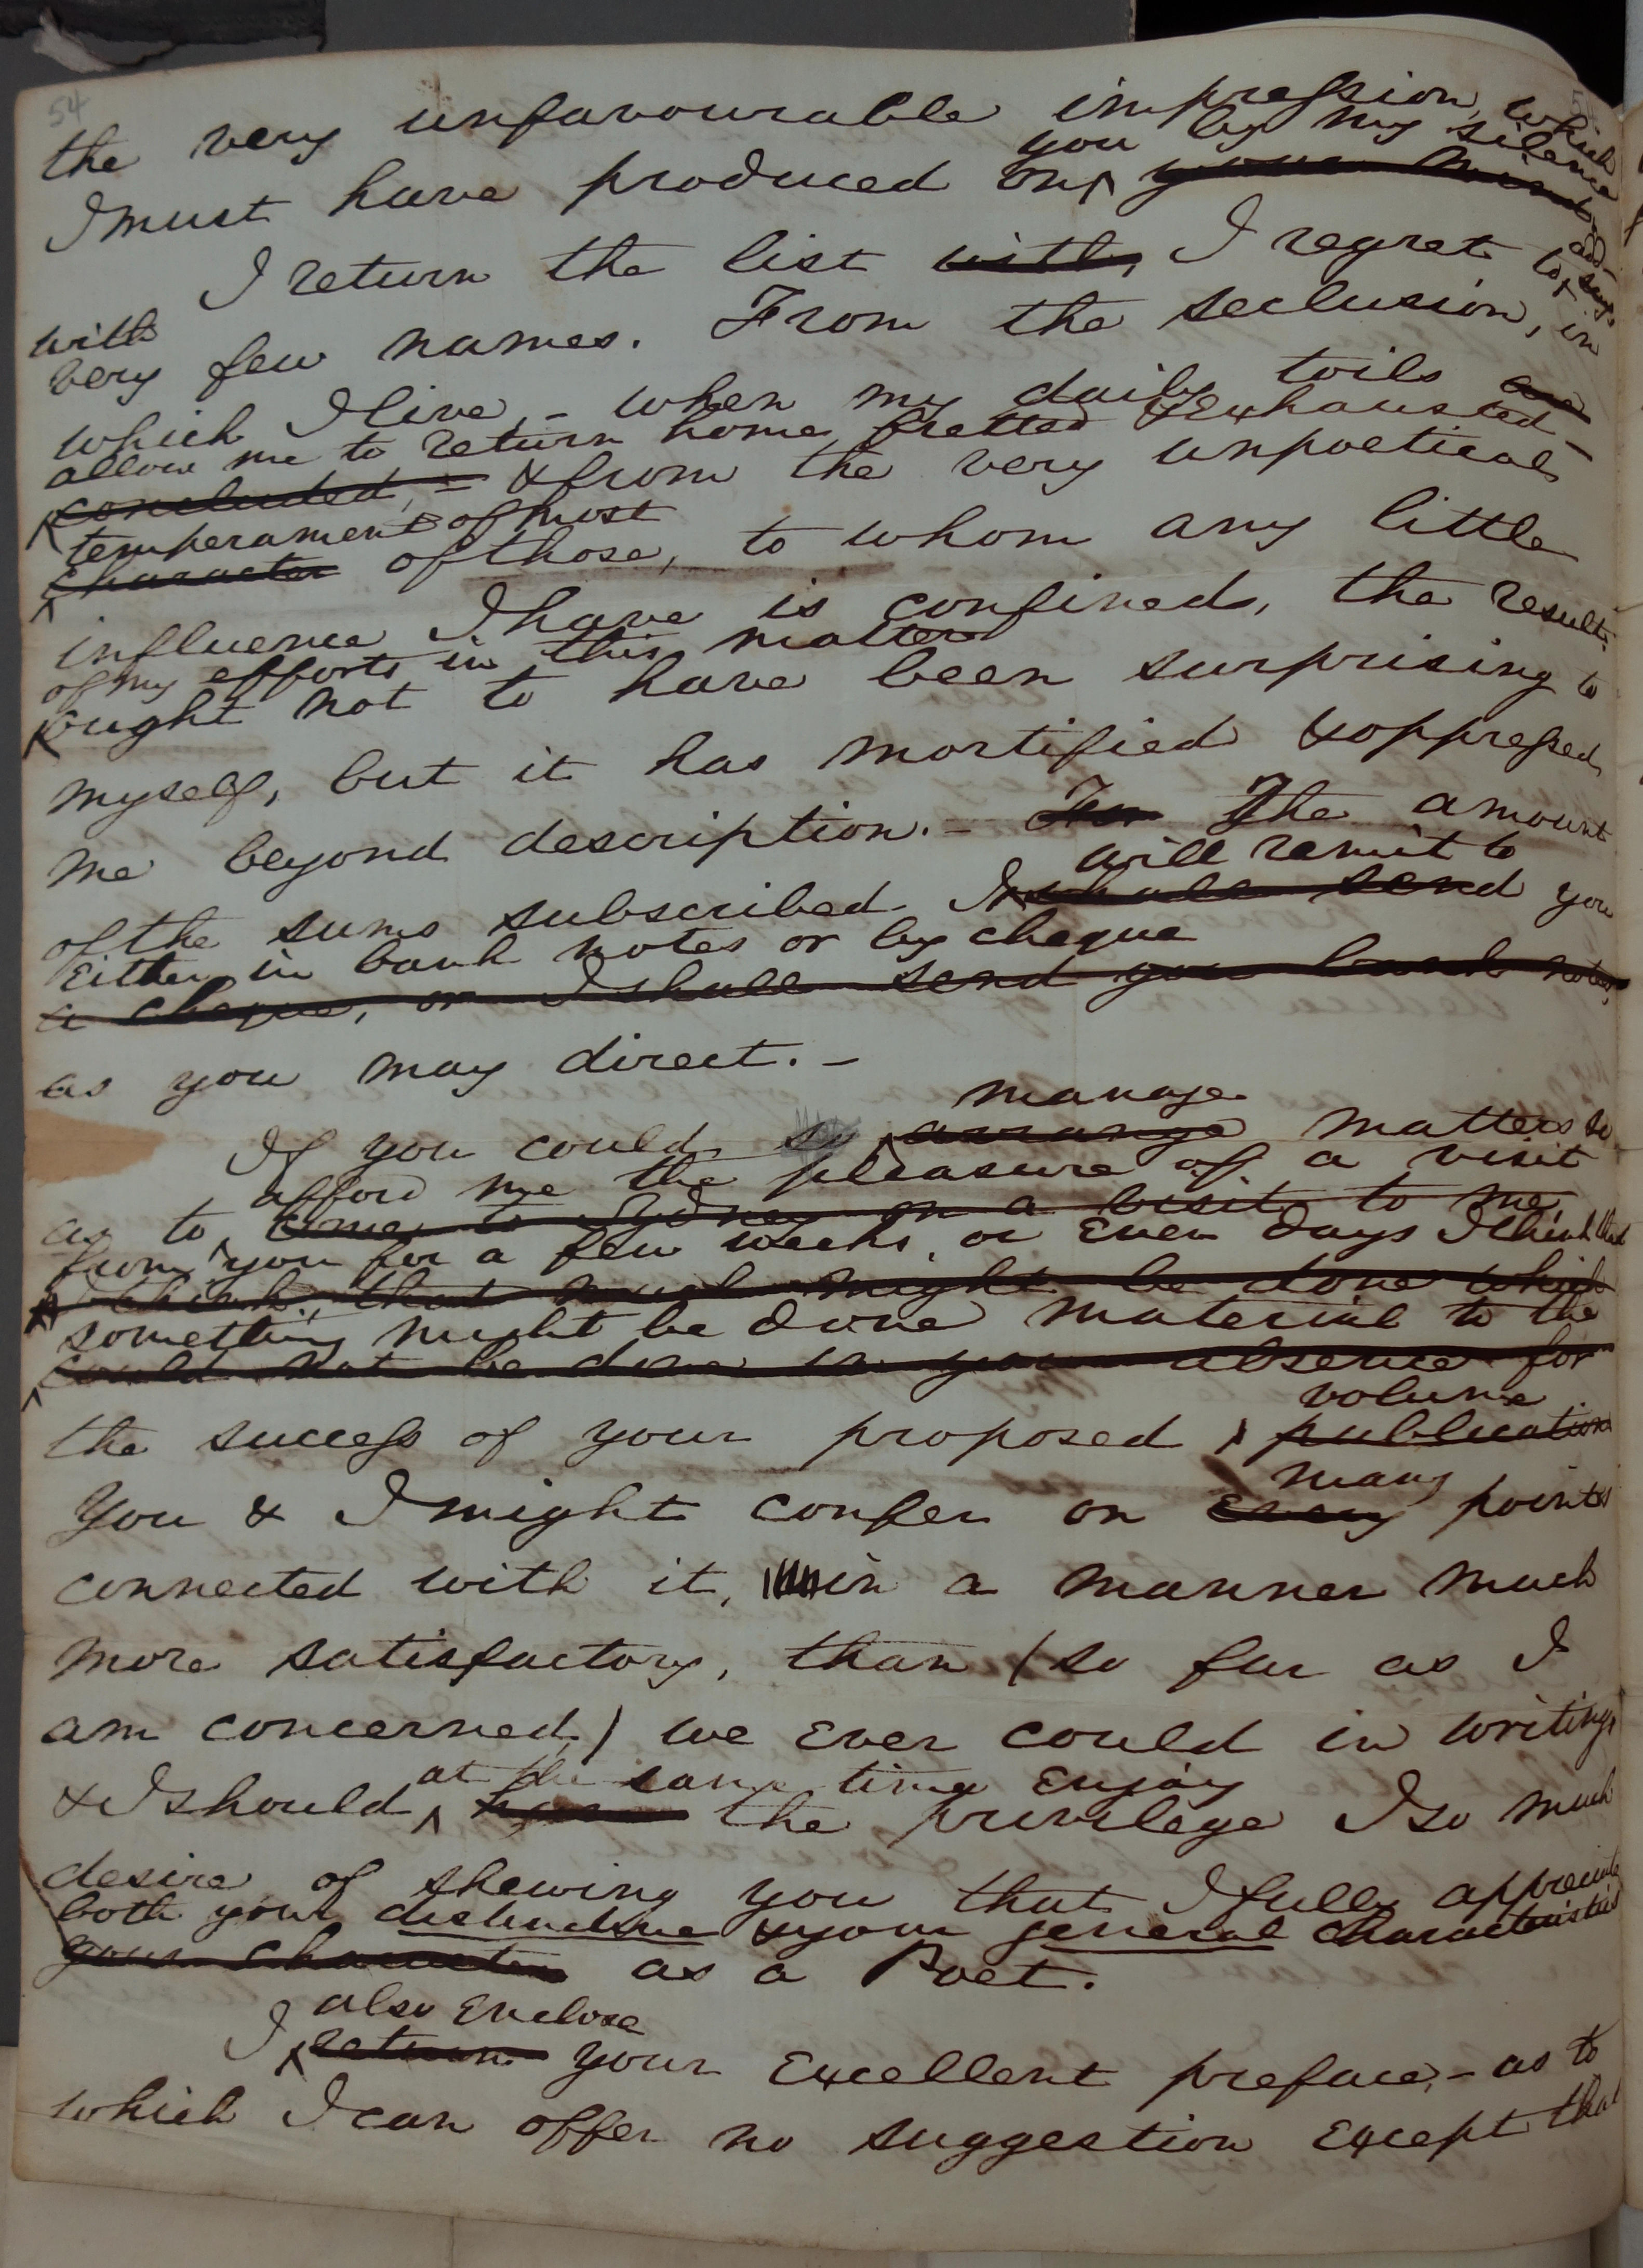 54
the very unfavourable impression, which
you by my silence
I must have produced on your mind
add
I return the list with, I regret to say
with
very few names. From the seclusion, in
which I live, - when my daily toils are
allow me to return home fretted & exhausted -
concluded, - & from the very unpoetical
temperament of most
character of those, to whom any little
influence I have is confined, the result
of my efforts in this matter
ought not to have been surprising to
myself, but it has mortified & oppressed
me beyond description. - The amount
will remit to
of the sums subscribed I shall send you
either in bank notes or by cheque
a cheque, or I shall send you bank notes,
as you may direct. -
manage
If you could so arrange matters so
afford me the pleasure of a visit
as to come to Sydney on a visit to me,
from you for a few weeks, or even days I think that
I think, that much might be done which
something might be done material to the
could not be done in your absence for
volume
the success of your proposed publication
many
You & I might confer on every points
connected with it, in a manner much
more satisfactory, than (so far as I
am concerned,) we ever could in writing
at the same time enjoy
& I should have the privilege I so much
desire of shewing you that I fully appreciate
both your distinctive & your general characteristics
your character as a Poet.
also enclose
I return your excellent preface, - as to
which I can offer no suggestion except that